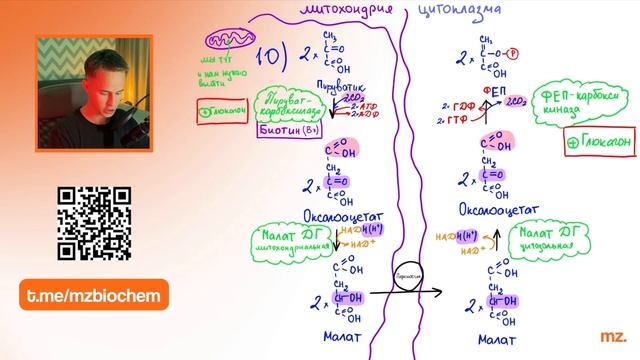 митохондрия
цитоплазма
мы тут
и нам нужно
выйти
10)
2 × CH3
C=O
C
O
OH
Пируватик
Пируват-
карбоксилаза
Биотин (B7)
⊕ Глюкагон
2CO2
2·АТФ
2·АДФ
C
O
OH
CH2
2 × C=O
C
O
OH
Оксалоацетат
Малат ДГ
митохондриальная
НАДН(H+)
НАД+
C
O
OH
CH2
2 × CH-OH
C
O
OH
Малат
CH2
2 × C-O-P
C
O
OH
ФЕП
2·ГДФ
2·ГТФ
2CO2
ФЕП-карбокси
киназа
⊕ Глюкагон
C
O
OH
CH2
2 × C=O
C
O
OH
Оксалоацетат
НАДН(H+)
НАД+
Малат ДГ
C
O
OH
CH2
2 × CH-OH
C
O
OH
Малат
t.me/mzbiochem
mz.